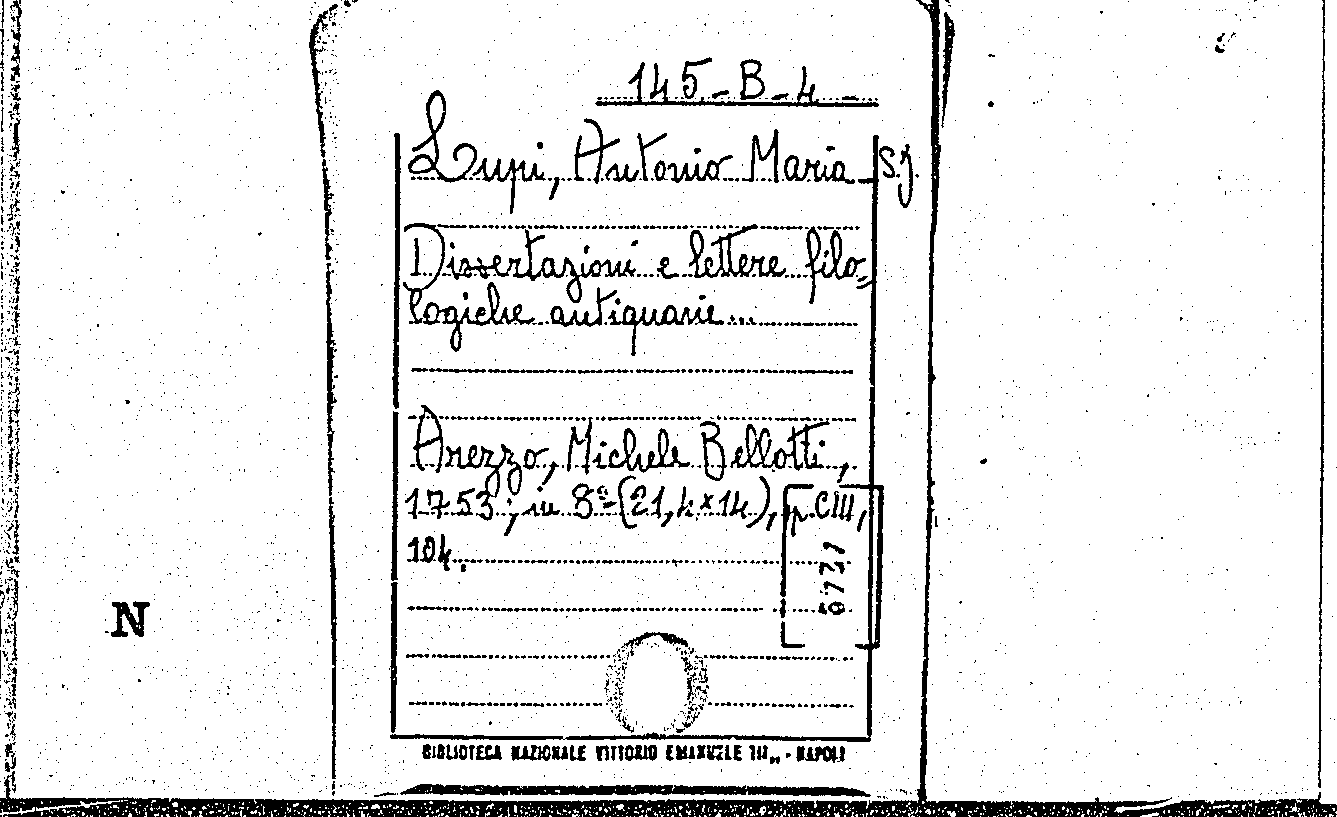 145-B-4-
Lupi, Antonio Maria - S.J.
Dissertazioni e lettere filo=
logiche antiquarie...
Arezzo, Michele Bellotti,
1753; in 8°-(21,4x14), p.CIII,
104.
N
BIBLIOTECA NAZIONALE VITTORIO EMANUELE III„ - NAPOLI